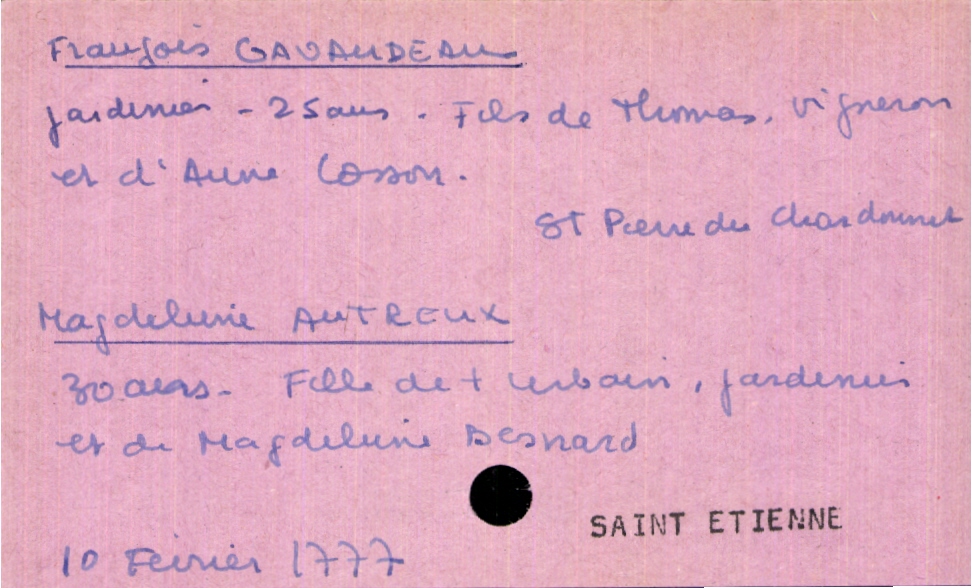 François GAVAUDEAU
jardinier - 25 ans. Fils de Thomas, vigneron
et d'Anne Cosson.
St Pierre du Chardonnet
Magdeleine AUTREUX
30 ans. Fille de + Urbain, jardinier
et de Magdeleine Besnard
SAINT ETIENNE
10 Février 1777